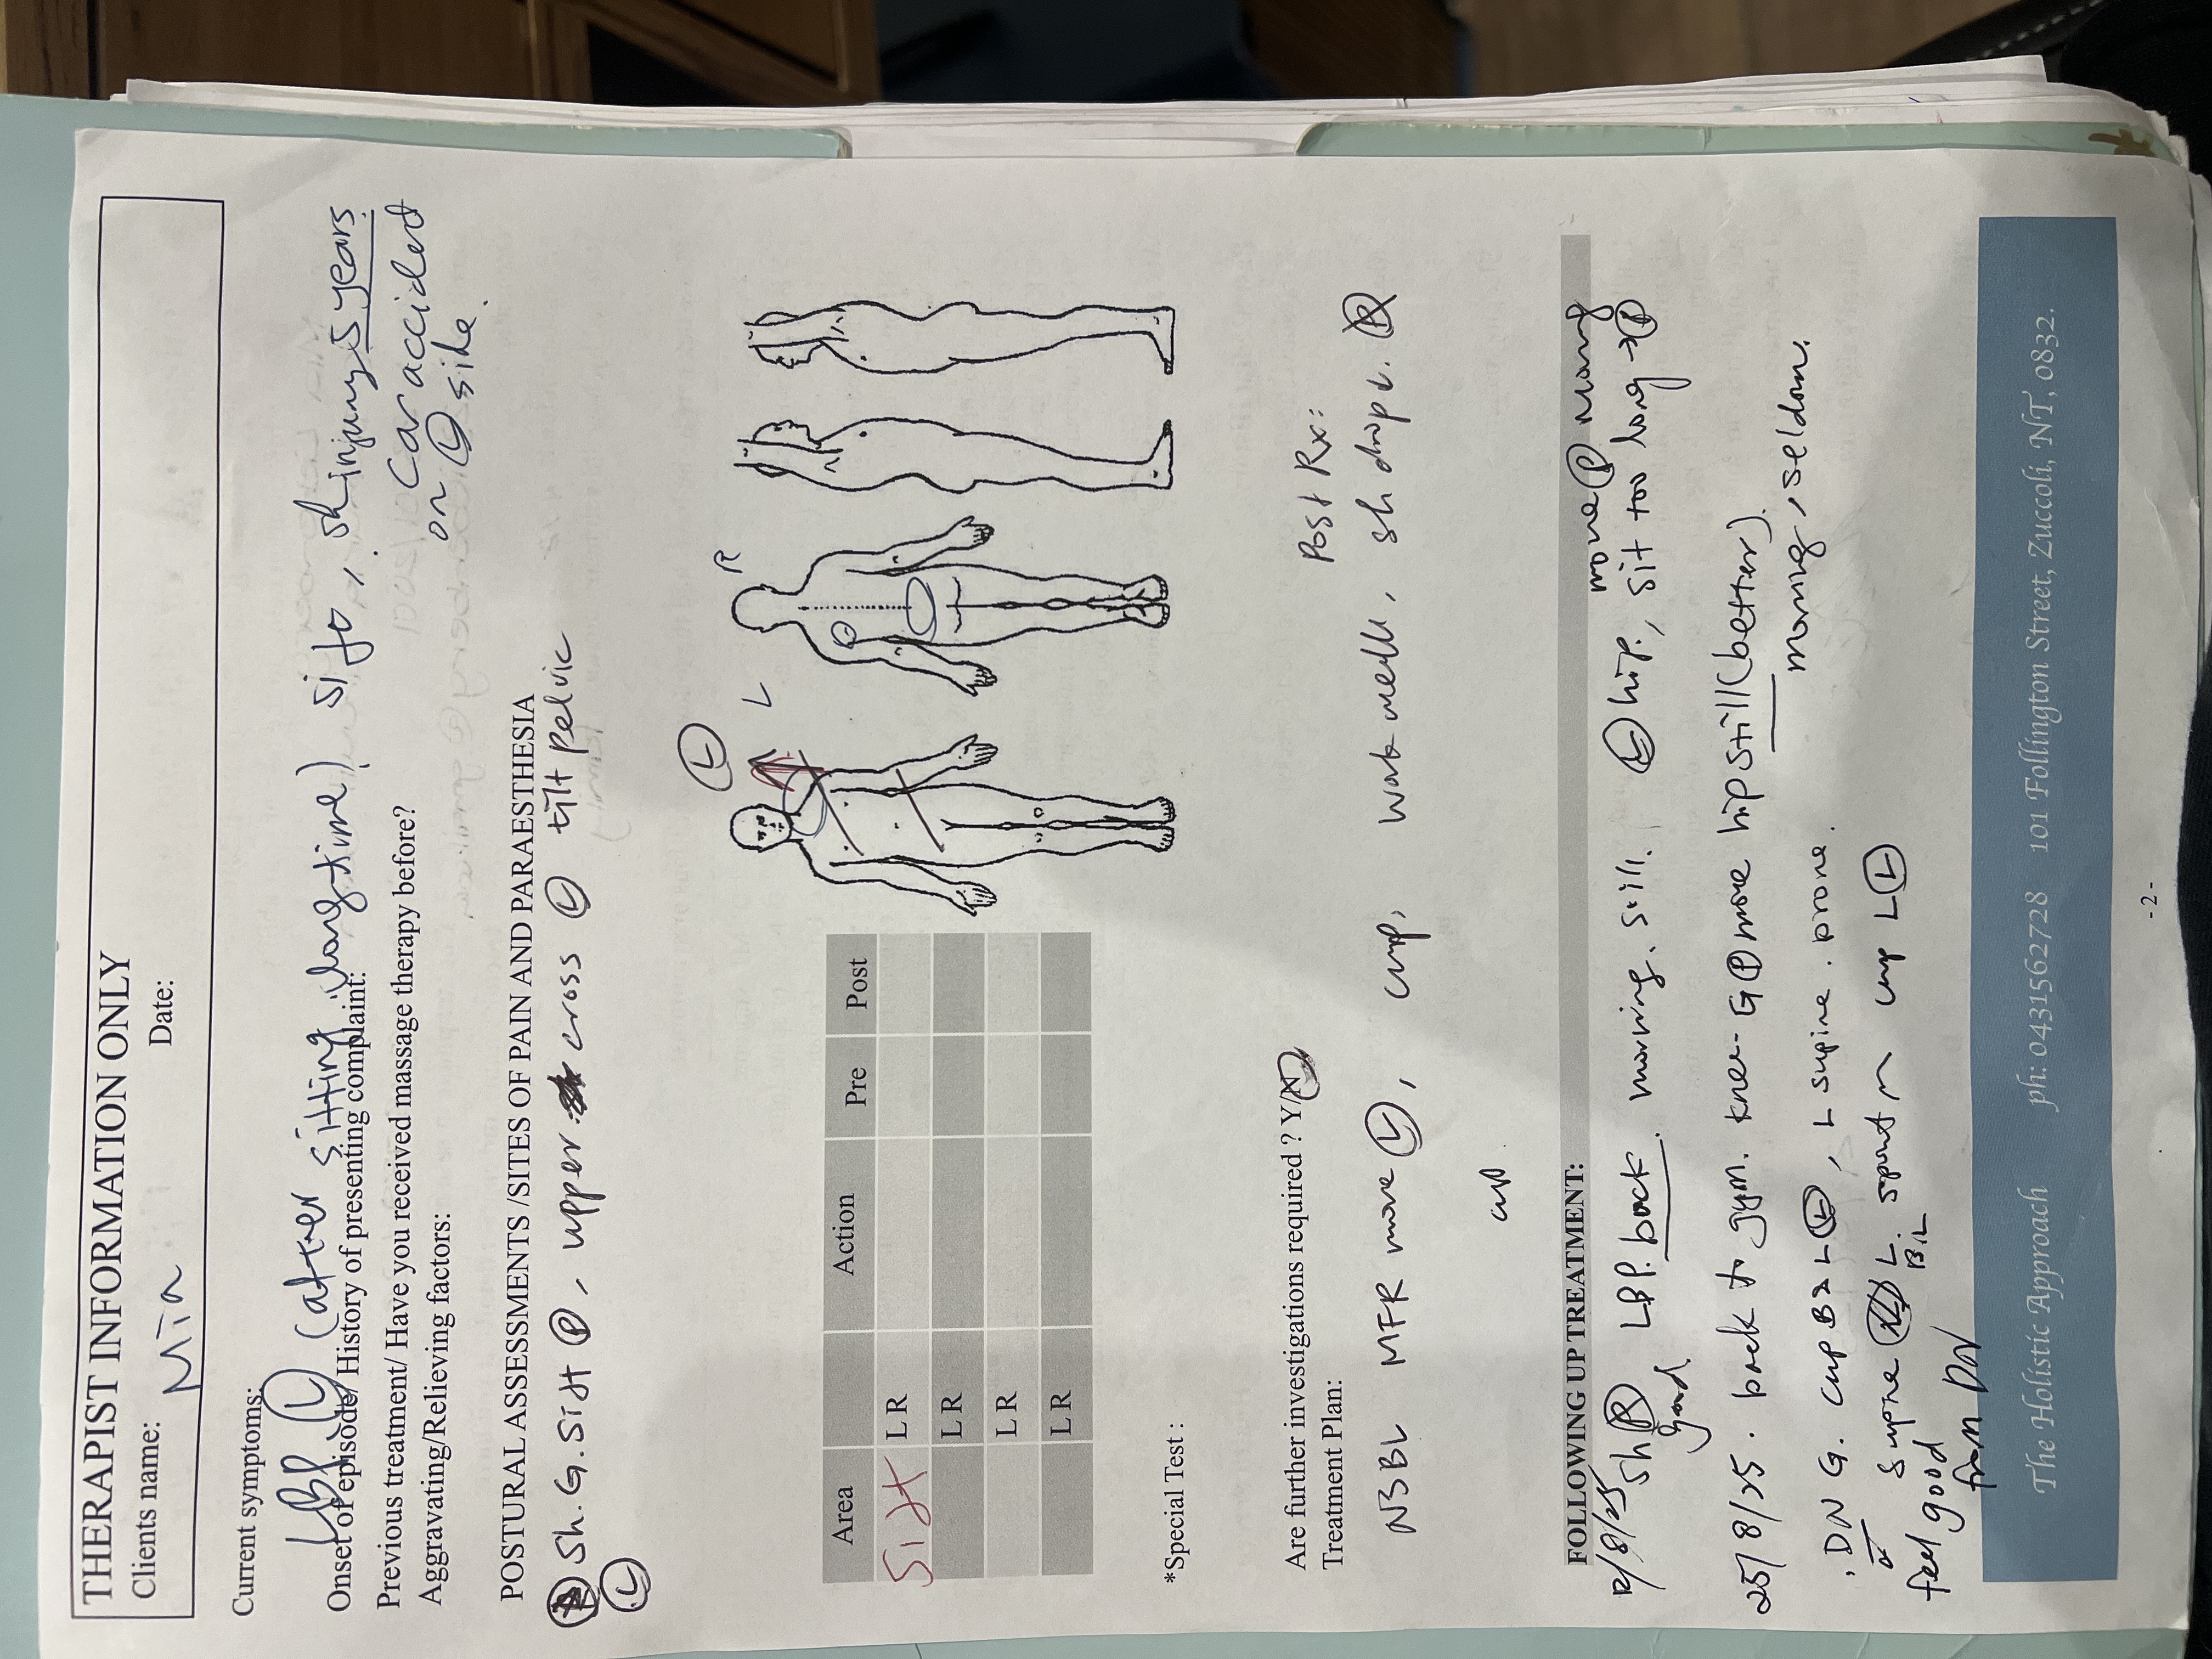 THERAPIST INFORMATION ONLY
Clients name: Mia Date:
Current symptoms:
LBP Ⓛ (after sitting longtime) sijo, sh injury 5 years
Car accident
on Ⓛ side.
Onset of episode/ History of presenting complaint:
Previous treatment/ Have you received massage therapy before?
Aggravating/Relieving factors:
POSTURAL ASSESSMENTS /SITES OF PAIN AND PARAESTHESIA
Sh. G. Sijt Ⓟ, upper cross Ⓛ tilt pelvic
Ⓛ
Ⓛ
L R
Area Action Pre Post
Sijt L R
L R
L R
L R
*Special Test :
Are further investigations required ? Y/N
Treatment Plan:
Post Rx:
MFR move Ⓛ, cup, work well, sh dropt.
cup.
FOLLOWING UP TREATMENT:
move Ⓟ morning
sh Ⓟ LBP. back. moving. still. Ⓛ hip, sit too long → Ⓟ
good
25/8/25. back to gym. knee G Ⓟ move hip still (better).
morning, seldom.
, DN G. cup B2 L Ⓛ, L supine. prone.
supine L. cup L Ⓛ
B.L
feel good
from DN
The Holistic Approach ph: 0431562728 101 Follington Street, Zuccoli, NT, 0832.
- 2 -